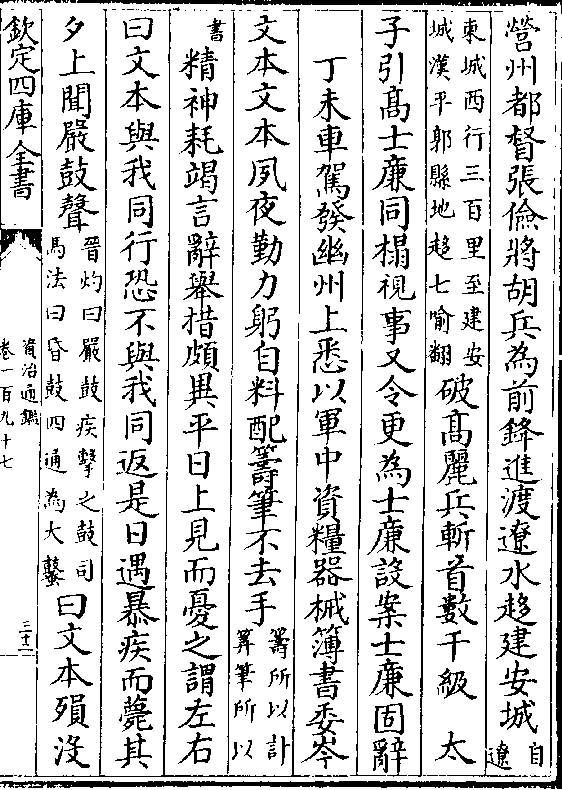 營州都督張儉將胡兵為前鋒進渡遼水趍建安城自遼
東城西行三百里至建安
城漢平郭縣地趍七喻翻破髙麗兵斬首數千級 太
子引髙士廉同榻視事又令更為士廉設案士廉固辭
丁未車駕發幽州上悉以軍中資糧器械簿書委岑
文本文本夙夜勤力躬自料配籌筆不去手籌所以計筭筆所以
書精神耗竭言辭舉措頗異平日上見而憂之謂左右
曰文本與我同行恐不與我同返是日遇暴疾而薨其
夕上聞嚴鼓聲晉灼曰嚴鼓疾擊之鼓司馬法曰昏鼓四通為大鼜曰文本殞没
欽定四庫全書
資治通鑑
卷一百九十七